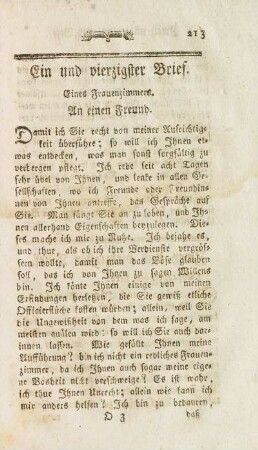 213
Ein und vierzigster Brief.
Eines Frauenzimmers.
An einen Freund.
Damit ich Sie recht von meiner Aufrichtig-
keit überführe; so will ich Ihnen et-
was entdecken, was man sonst sorgfältig zu
verbergen pflegt. Ich rede seit acht Tagen
sehr übel von Ihnen, und lenke in allen Ge-
sellschaften, wo ich Freunde oder Freundin-
nen von Ihnen antreffe, das Gespräche auf
Sie. Man fängt Sie an zu loben, und Ih-
nen allerhand Eigenschaften beyzulegen. Die-
ses mache ich mir zu Nutze. Ich bejahe es,
und thue, als ob ich ihre Verdienste vergrös-
sern wollte, damit man das Böse glauben
soll, das ich von Ihnen zu sagen Willens
bin. Ich könte Ihnen einige von meinen
Erfindungen hersetzen, die Sie gewiß etliche
Officierflüche kosten würden; allein, weil Sie
die Ungewißheit von dem was ich sage, am
meisten quälen wird: so will ich Sie auch dar-
innen lassen. Wie gefällt Ihnen meine
Aufführung? bin ich nicht ein redliches Frauen-
zimmer, da ich Ihnen auch sogar meine eige-
ne Bosheit nicht verschweige? Es ist wahr,
ich thue Ihnen Unrecht; allein wie kann ich
mir anders helfen? Ich bin zu bedauren,
O 3 daß